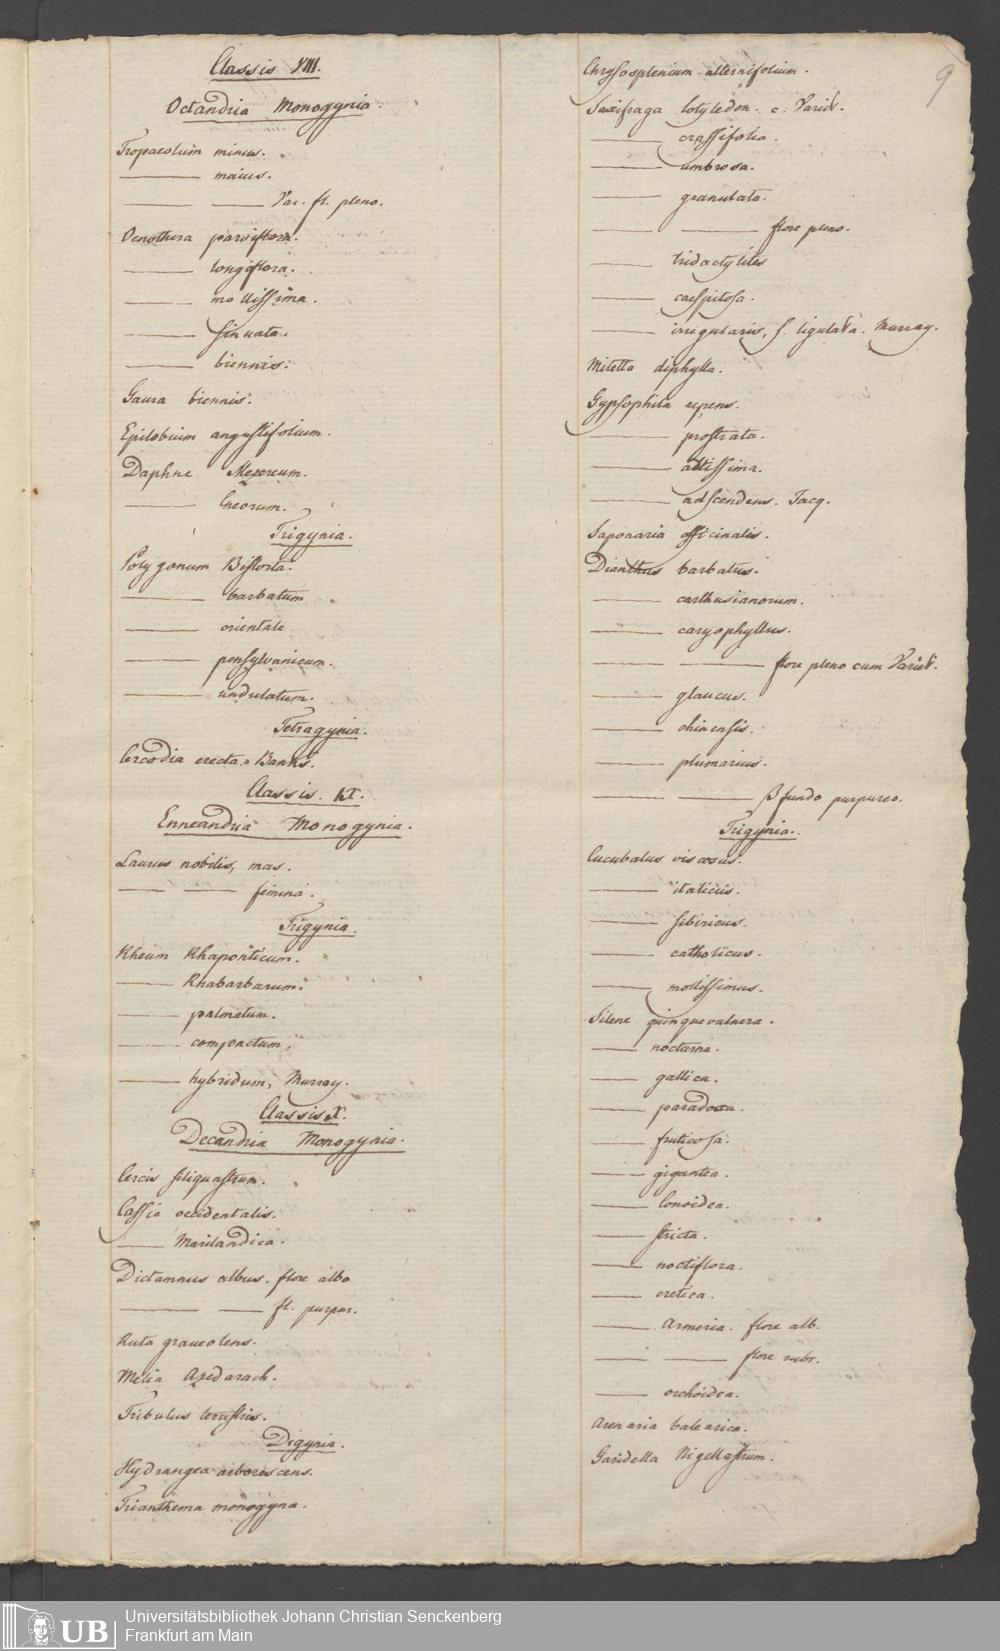 9
Classis VIII.
Octandria Monogynia.
Tropaeolum minus.
——— maius.
——— —— Var. fl. pleno.
Oenothera parviflora.
——— longiflora.
——— mollissima.
——— sinuata.
——— biennis.
Gaura biennis.
Epilobium angustifolium.
Daphne Mezereum.
——— Cneorum.
Trigynia.
Polygonum Bistorta.
——— barbatum
——— orientale
——— pensylvanicum.
——— undulatum.
Tetragynia.
Cercodia erecta. Banks.
Classis. IX.
Enneandria Monogynia.
Laurus nobilis, mas.
—— —— femina.
Trigynia.
Rheum Rhaponticum.
—— Rhabarbarum.
—— palmatum.
—— compactum.
—— hybridum, Murray.
Classis X.
Decandria Monogynia.
Cercis siliquastrum.
Cassia occidentalis.
—— Marilandica.
Dictamnus albus. flore albo
——— —— fl. purpur.
Ruta graveolens.
Melia Azedarach.
Tribulus terrestris.
Digynia.
Hydrangea arborescens.
Trianthema monogyna.
Chrysosplenium alternifolium.
Saxifraga Cotyledon. c. Variet.
——— crassifolia.
——— umbrosa.
—— granulata.
—— ——— flore pleno.
——— tridactylites
——— caespitosa.
——— irregularis, s. ligulata. Murray.
Mitella diphylla.
Gypsophila repens.
——— prostrata.
——— altissima.
——— adscendens. Jacq.
Saponaria officinalis.
Dianthus barbatus.
——— carthusianorum.
——— caryophyllus.
——— ——— flore pleno cum Variet.
——— glaucus.
——— chinensis.
——— plumarius.
——— ——— β fundo purpureo.
Trigynia.
Cucubalus viscosus.
——— italicus.
——— sibiricus.
——— catholicus.
——— mollissimus.
Silene quinquevulnera.
—— nocturna.
—— gallica.
—— paradoxa.
—— fruticosa.
—— gigantea.
—— Conoidea.
—— stricta.
—— noctiflora.
—— cretica.
—— Armeria. flore alb.
—— ——— flore rubr.
—— orchidea.
Arenaria balearica.
Garidella Nigellastrum.
UB
Universitätsbibliothek Johann Christian Senckenberg
Frankfurt am Main